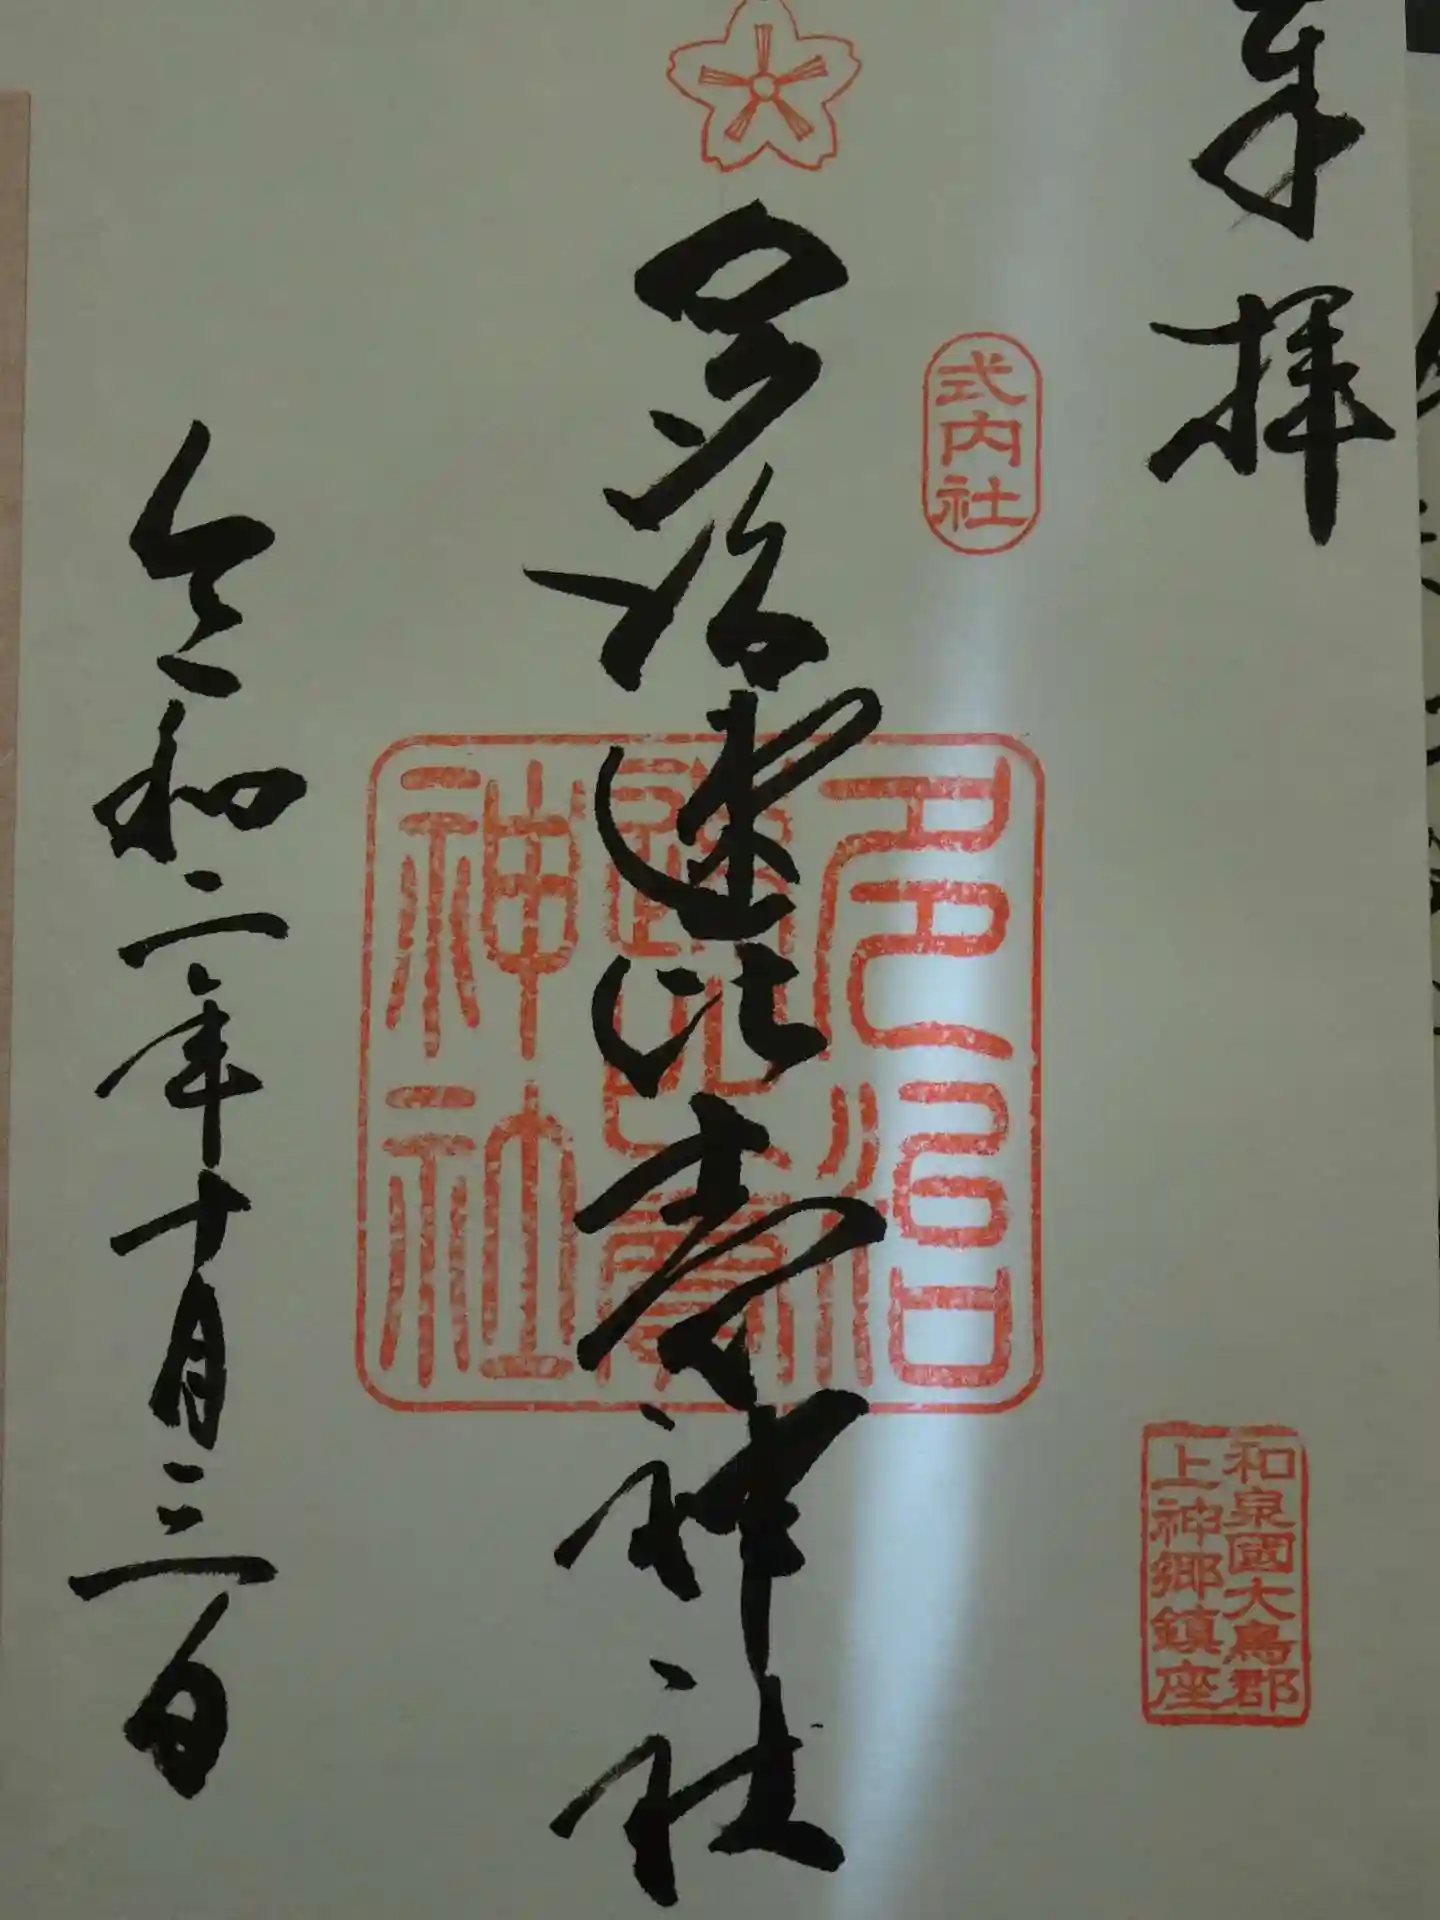 奉拝
式内社
和泉國大鳥郡
上神郷鎮座
多治速比売神社
多治
速比賣
神社
令和二年十月三日